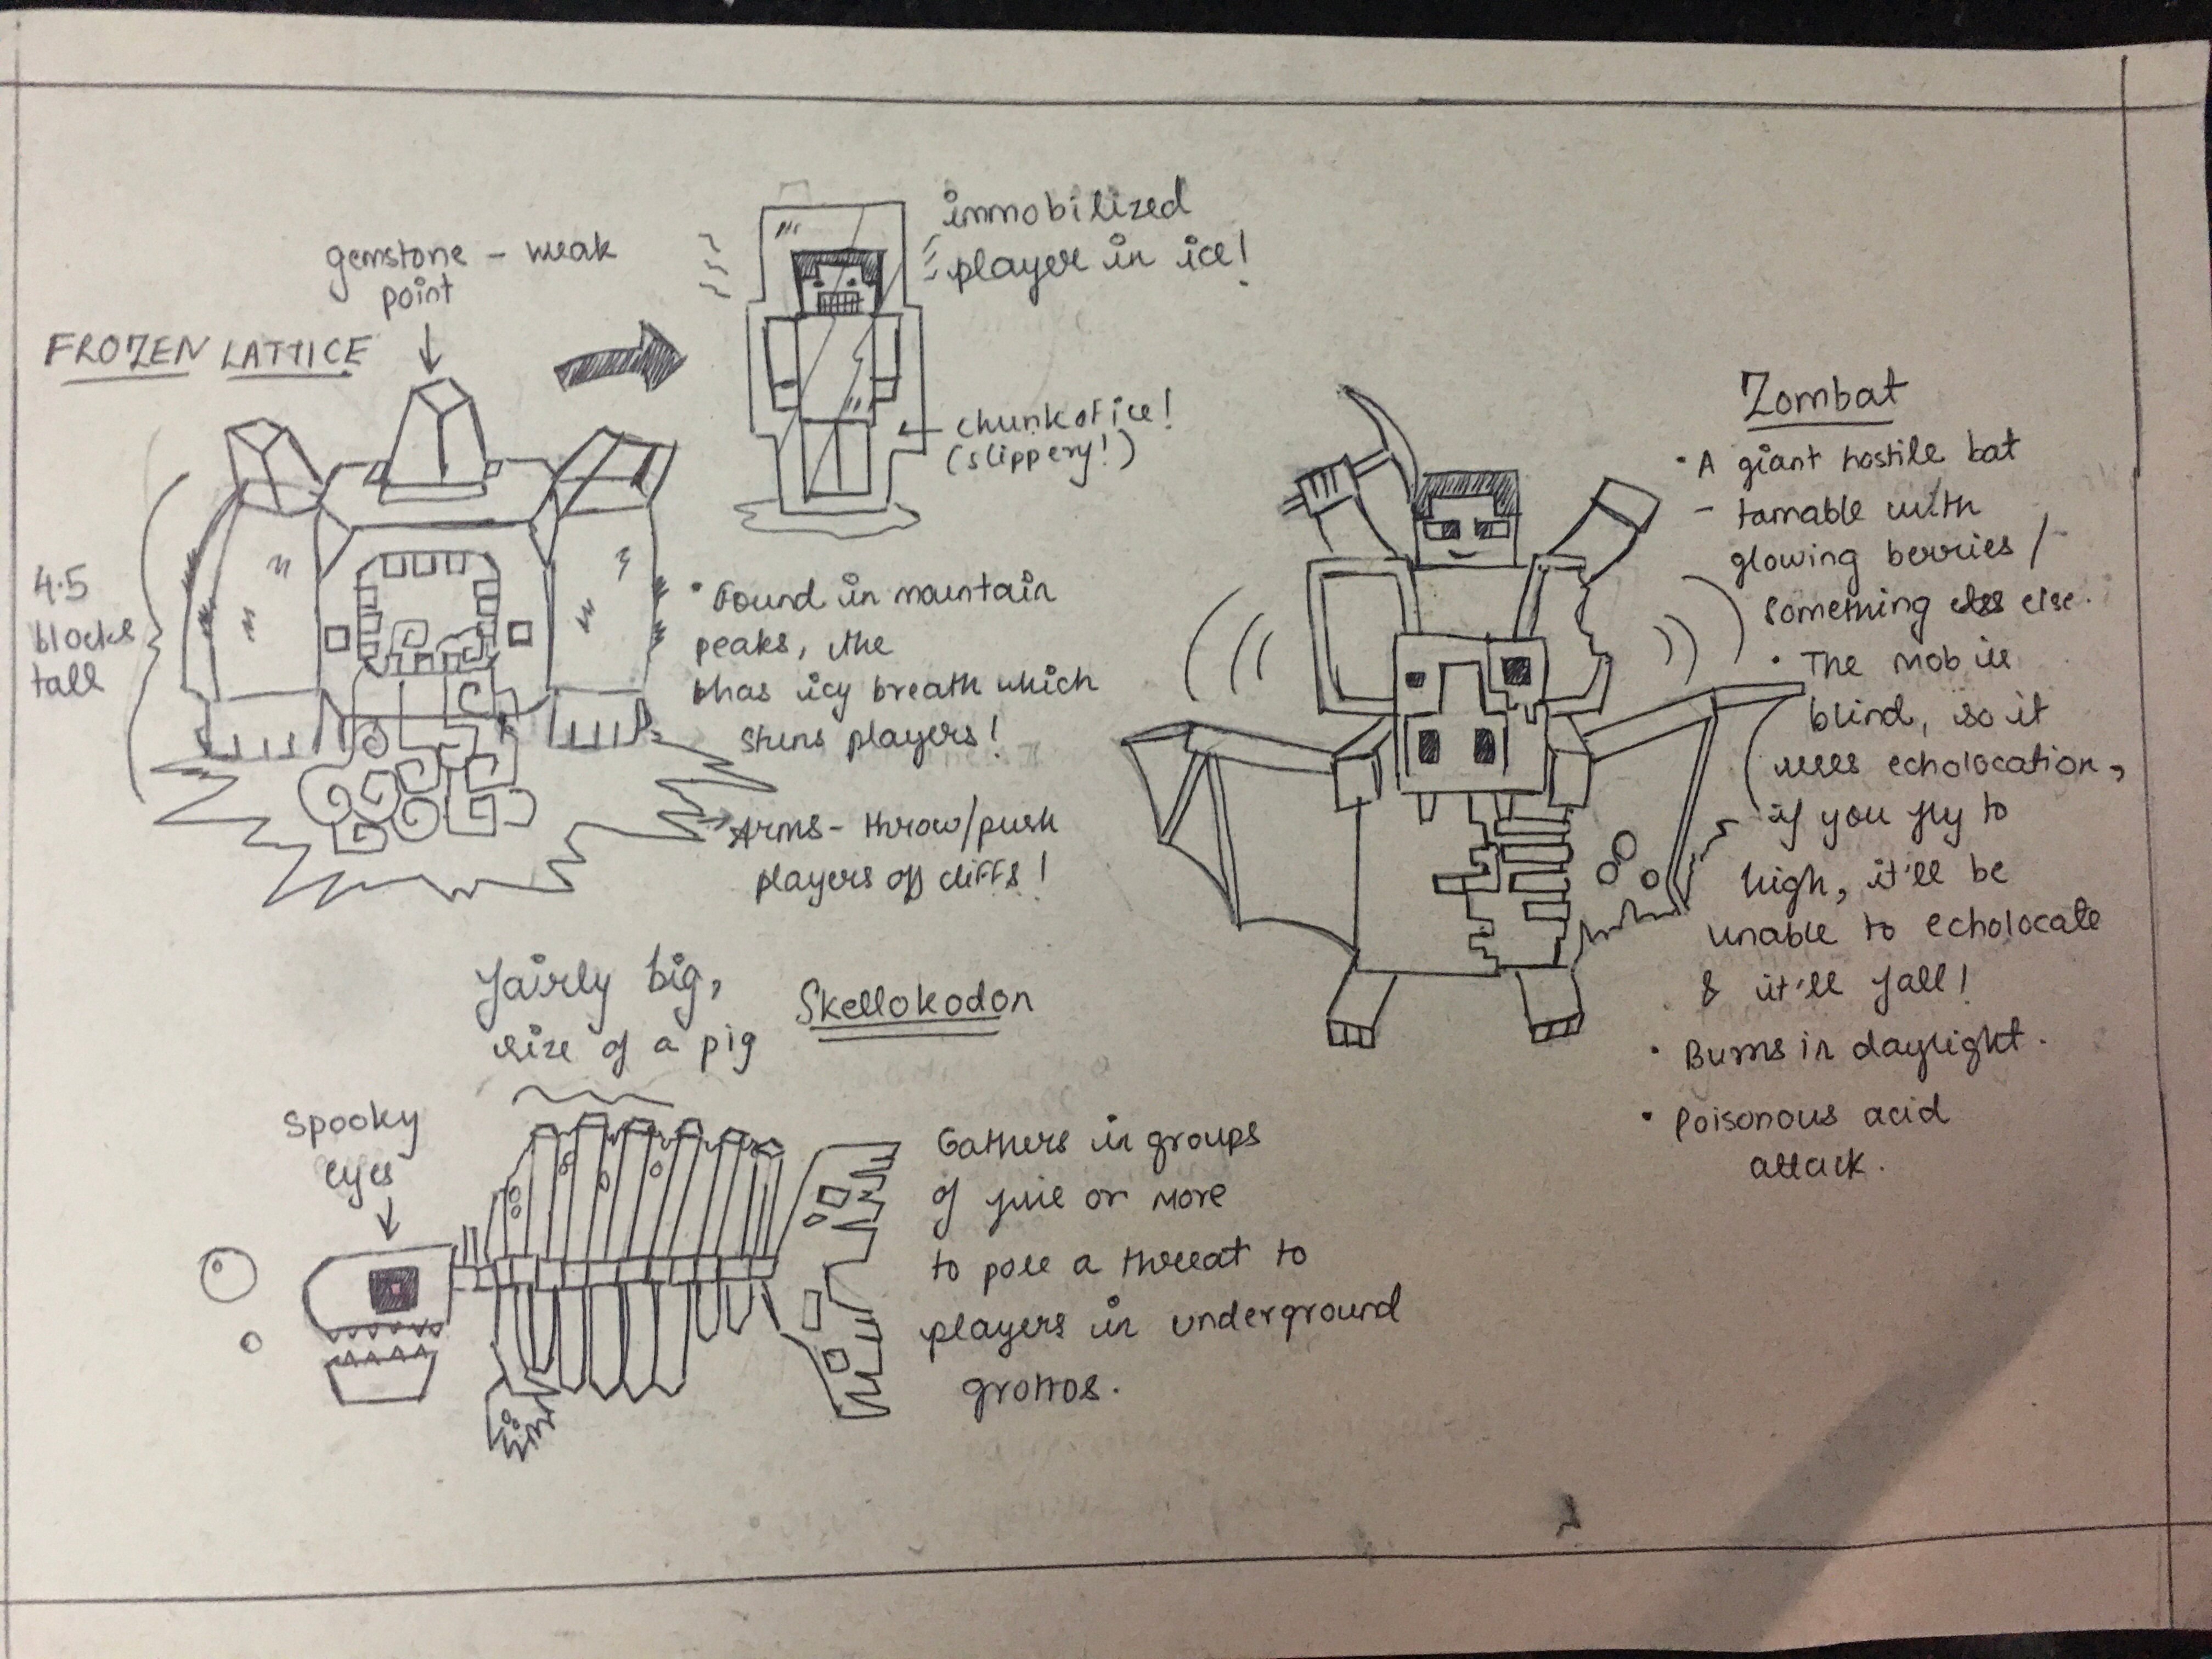 gemstone - weak
point
FROZEN LATTICE
immobilized
player in ice!
chunk of ice!
(slippery!)
4.5
blocks
tall
• Found in mountain
peaks, the
has icy breath which
stuns players!
Arms - throw/push
players off cliffs!
Zombat
• A giant hostile bat
- tamable with
glowing berries /
something else.
• The mob is
blind, so it
uses echolocation,
if you fly to
high, it'll be
unable to echolocate
& it'll fall!
• Burns in daylight.
• Poisonous acid
attack.
fairly big,
size of a pig
Skellokodon
spooky
eyes
Gathers in groups
of five or more
to pose a threat to
players in underground
grottos.